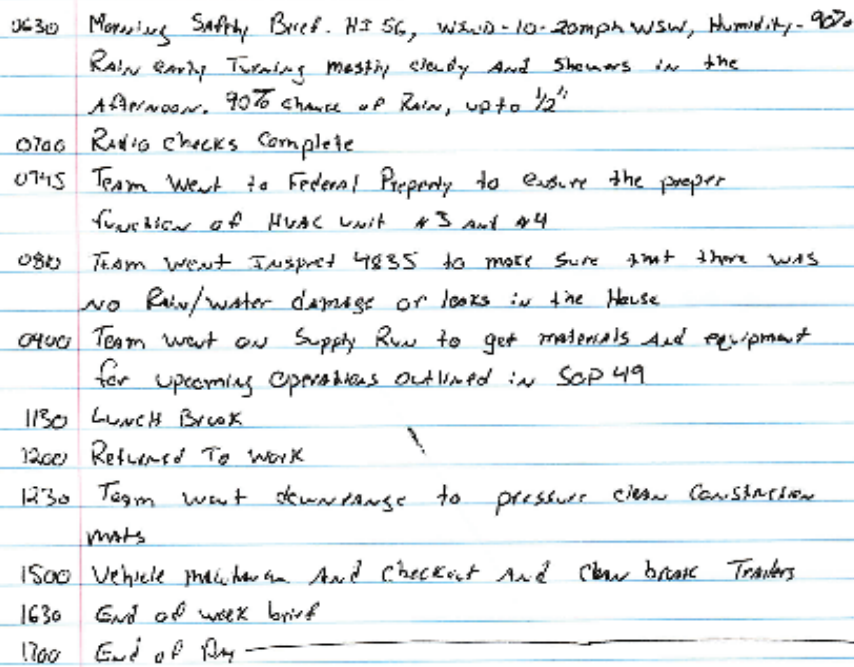 0630 Morning Safety Brief. HI 56, WIND-10-20mph WSW, Humidity-90%
Rain early Turning mostly cloudy And Showers in the
Afternoon. 90% chance of Rain, up to 1/2"
0700 Radio Checks Complete
0745 Team Went to Federal Property to ensure the proper
function of HVAC unit #3 and #4
0810 Team went Inspect 4835 to make sure that there was
no Rain/water damage or leaks in the House
0900 Team went on Supply Run to get materials And equipment
for upcoming Operations outlined in SOP 49
1130 Lunch Break
1200 Returned To Work
1230 Team went downrange to pressure clean Construction
mats
1500 Vehicle And Checkout And Clean break Trailers
1630 End of week brief
1700 End of Day